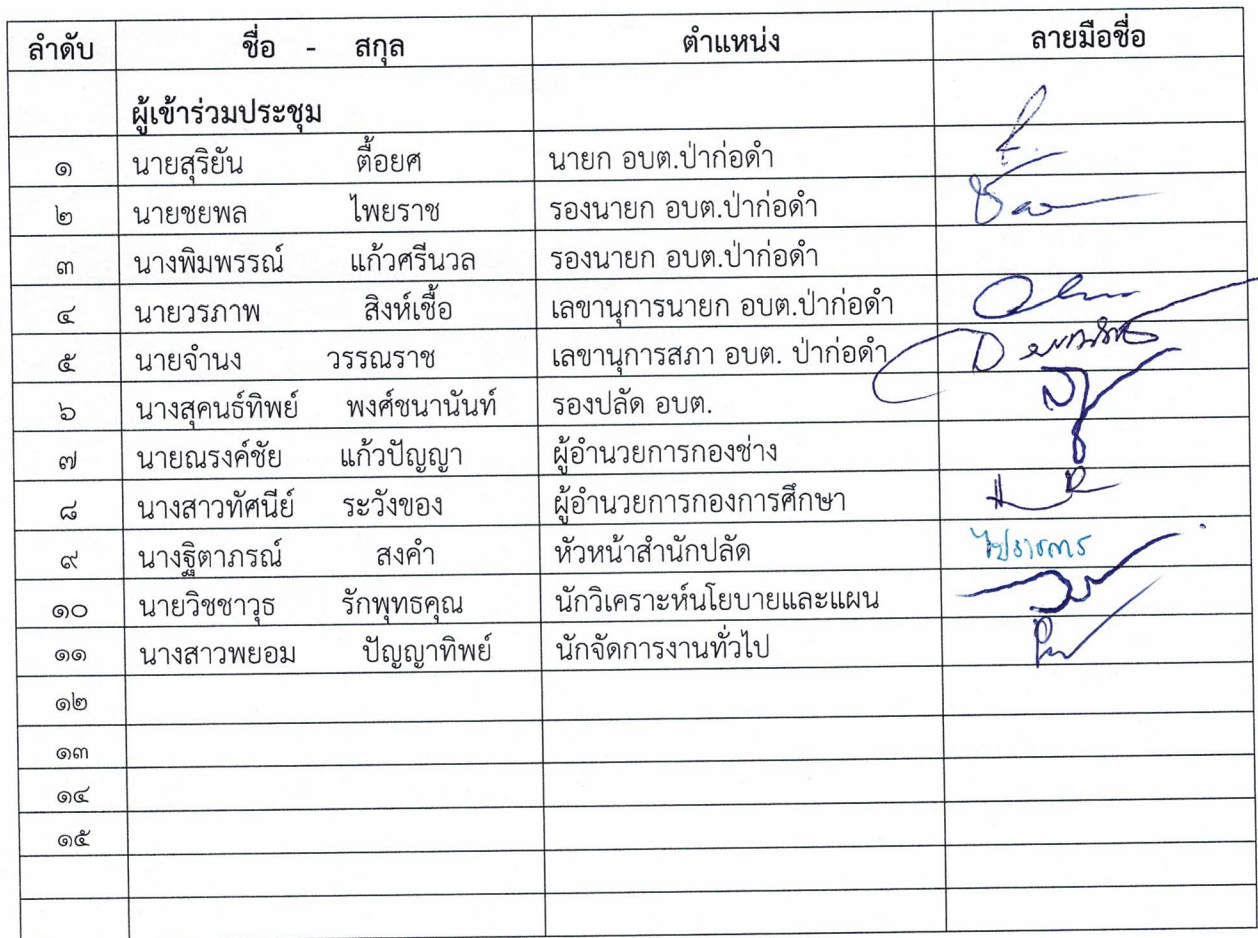 ลำดับ ชื่อ - สกุล ตำแหน่ง ลายมือชื่อ
ผู้เข้าร่วมประชุม
๑ นายสุริยัน ตื้อยศ นายก อบต.ป่าก่อดำ
๒ นายชยพล ไพยราช รองนายก อบต.ป่าก่อดำ
๓ นางพิมพรรณ์ แก้วศรีนวล รองนายก อบต.ป่าก่อดำ
๔ นายวรภาพ สิงห์เชื้อ เลขานุการนายก อบต.ป่าก่อดำ
๕ นายจำนง วรรณราช เลขานุการสภา อบต. ป่าก่อดำ
๖ นางสุคนธ์ทิพย์ พงศ์ชนานันท์ รองปลัด อบต.
๗ นายณรงค์ชัย แก้วปัญญา ผู้อำนวยการกองช่าง
๘ นางสาวทัศนีย์ ระวังของ ผู้อำนวยการกองการศึกษา
๙ นางฐิตาภรณ์ สงคำ หัวหน้าสำนักปลัด ไปราชการ
๑๐ นายวิชชาวุธ รักพุทธคุณ นักวิเคราะห์นโยบายและแผน
๑๑ นางสาวพยอม ปัญญาทิพย์ นักจัดการงานทั่วไป
๑๒
๑๓
๑๔
๑๕